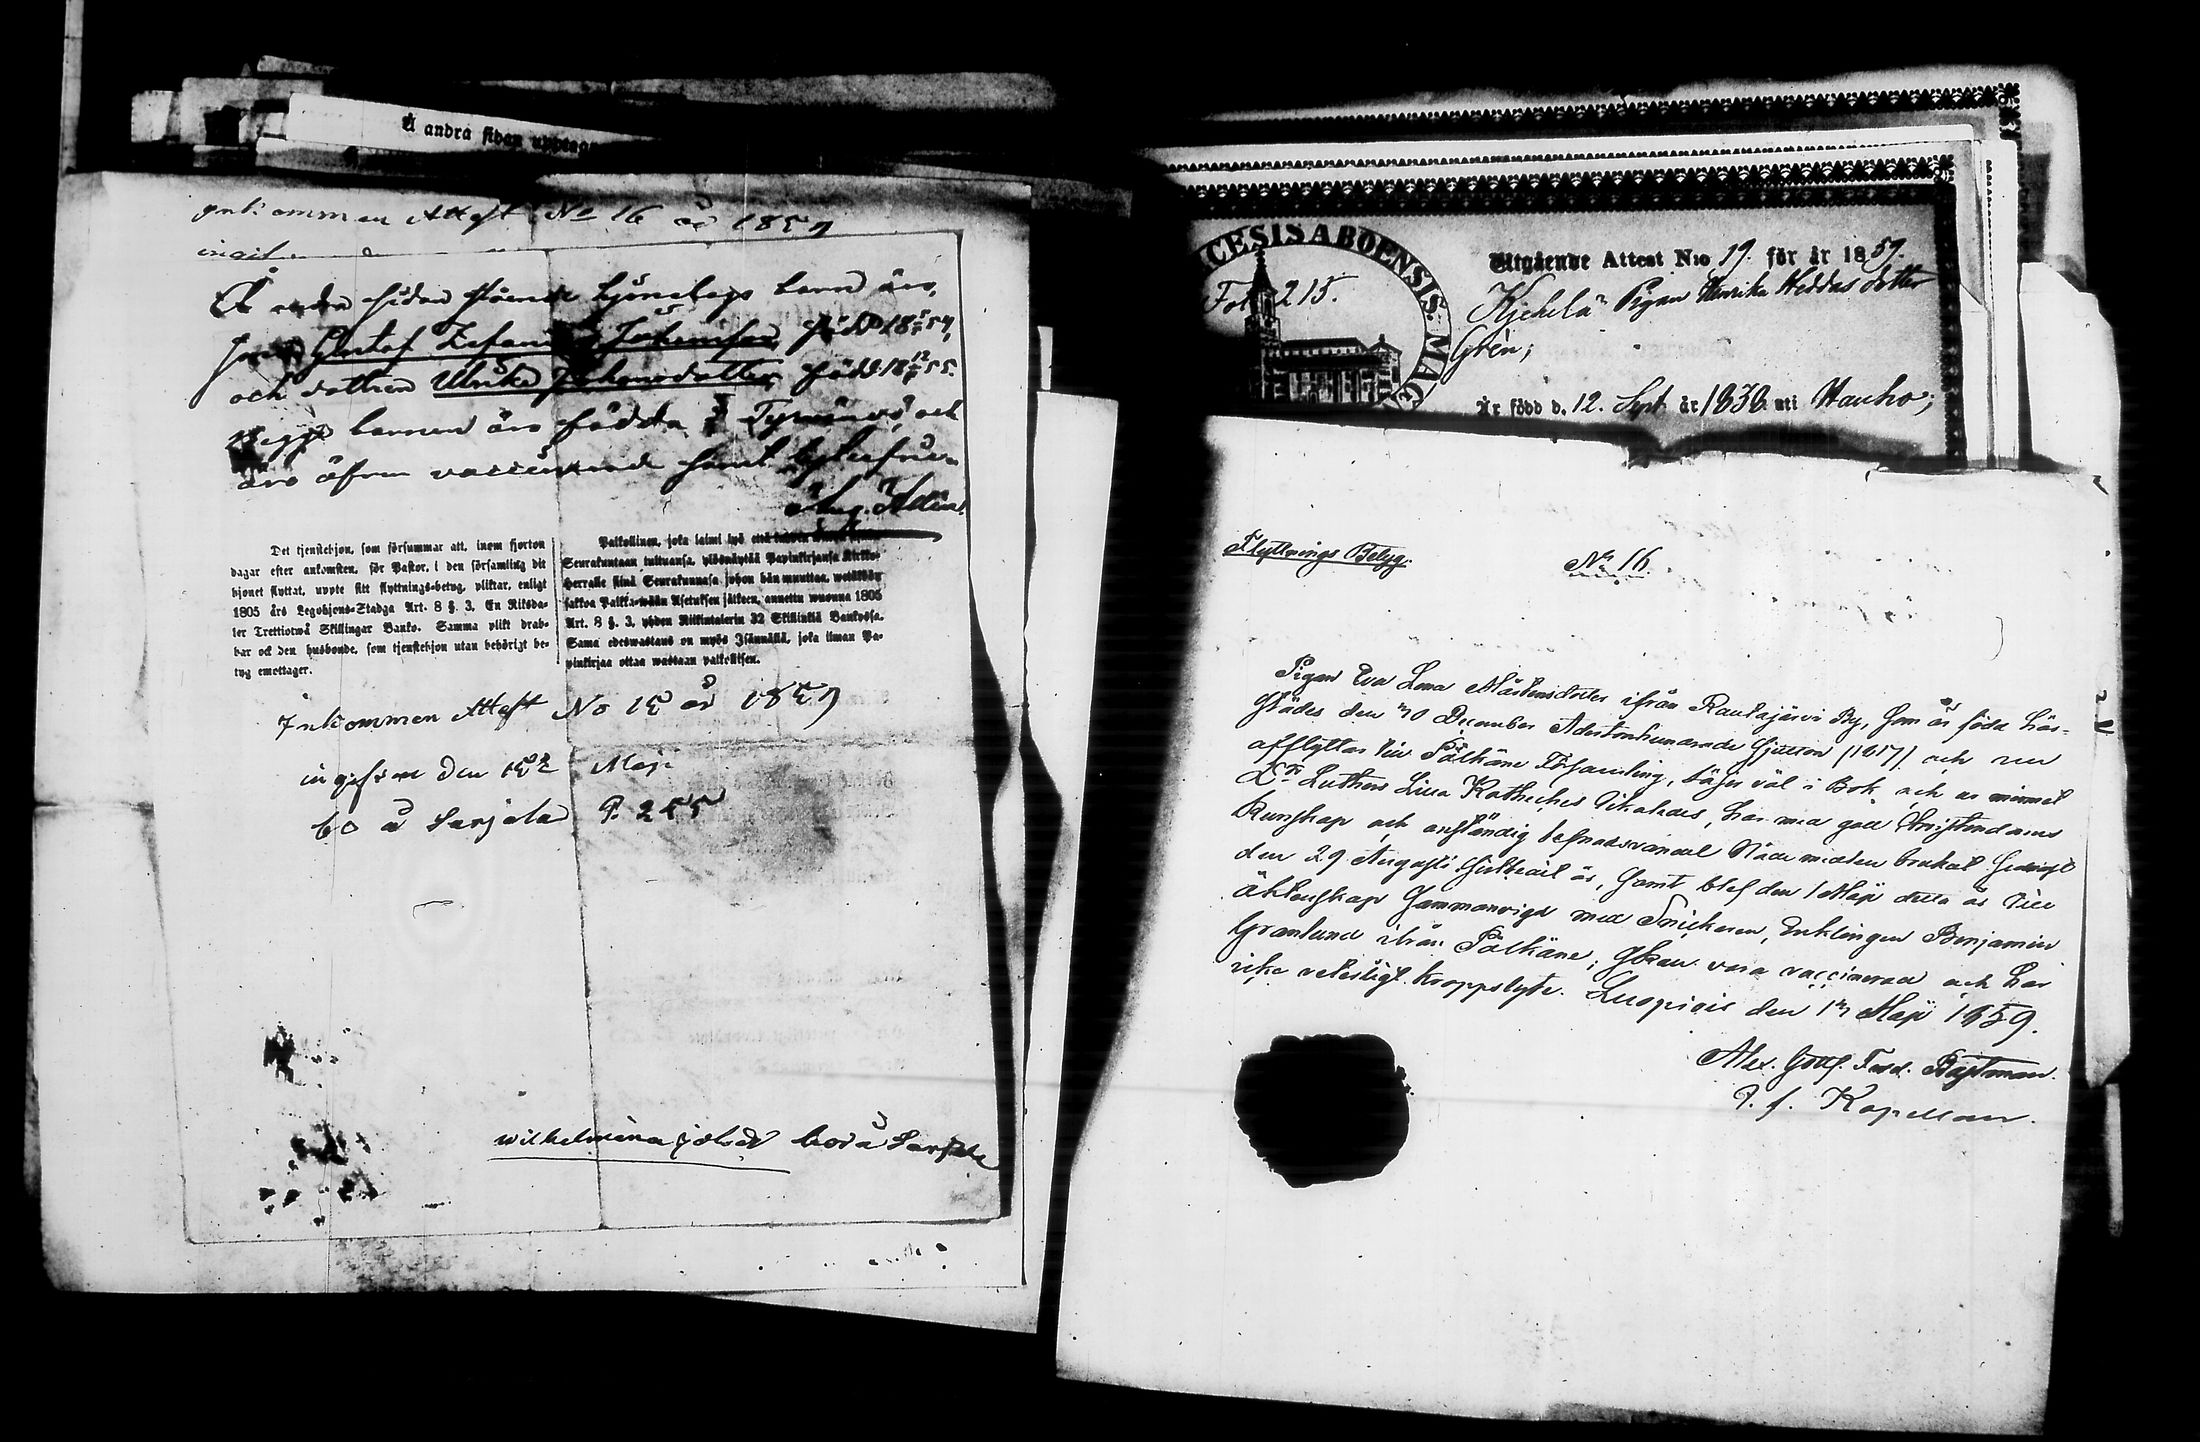 Å andra sidan upptag
Inkommen Attest No 16 år 1859
Å andra sidan stående tjenstehjons barn äro,
Gustaf Johansson född 18 5/5 57,
och dottren Ulrika Johansdotter född 18 12/7 55.
Begge barnen äro födda i Tyrvänö, och
äro äfven vaccinerade samt lytesfria.
Det tjenstehjon, som försummar att, inom fjorton
dagar efter ankomsten, för Pastor, i den församling dit
hjonet flyttat, uppte sitt flyttnings-betyg, pliktar, enligt
1805 års Legohjons-Stadga Art. 8 §. 3, En Riksda-
ler Trettiotwå Skillingar Banko. Samma plikt drab-
bar ock den husbonde, som tjenstehjon utan behörigt be-
tyg emottager.
Palkollinen, joka laimi lyö
Seurakuntaan tultuansa, ylösnäyttää Papinkirjansa Kirkko-
Herralle siinä Seurakunnassa johon hän muuttaa, wetäköön
sakkoa Palkka-wäen Asetuksen jälkeen, annettu wuonna 1805
Art. 8 §. 3, yhden Riikintalerin 32 Skillinkiä Bankossa.
Sama edeswastaus on myös Isännällä, joka ilman Pa-
pinkirjaa ottaa wastaan palkollisen.
Inkommen Attest No 15 år 1859
ingifven den 15de Maji
bo å Sarjala P. 255
wilhelmina bor å Sarjala
CESIS ABOENSIS. MAG
Fol. 215.
Utgående Attest N:o 19. för år 1859.
Pigan Henrika Heddas dotter
Grén,
Är född d. 12. Sept. år 1836. uti Hauho;
Flyttnings Betyg.
No 16.
Pigan Eva Lena Mårtensdotter ifrån Rautajärvi By, som är född här-
städes den 30 December Adertonhundrade sjutton (1817) och nu
afflyttar till Pälkäne Församling, läser väl i Bok och ur minnet
D:r Luthers Lilla Katheches Utkaledes, har med god Christendoms
Kunskap och anständig lefnadsvandel Nådemedlen brukat senast
den 29 Augusti sistledit år, samt blef den 1 Maji detta år till
äktenskap sammanvigd med Snickaren, Enklingen Benjamin
Granlund ifrån Pälkäne; skall vara vaccinerad och har
icke veterligt kroppslyte. Luopiois den 13 Maji 1859.
Alex. Gottf. Ferd. Bastman.
v. f. Kapellan.